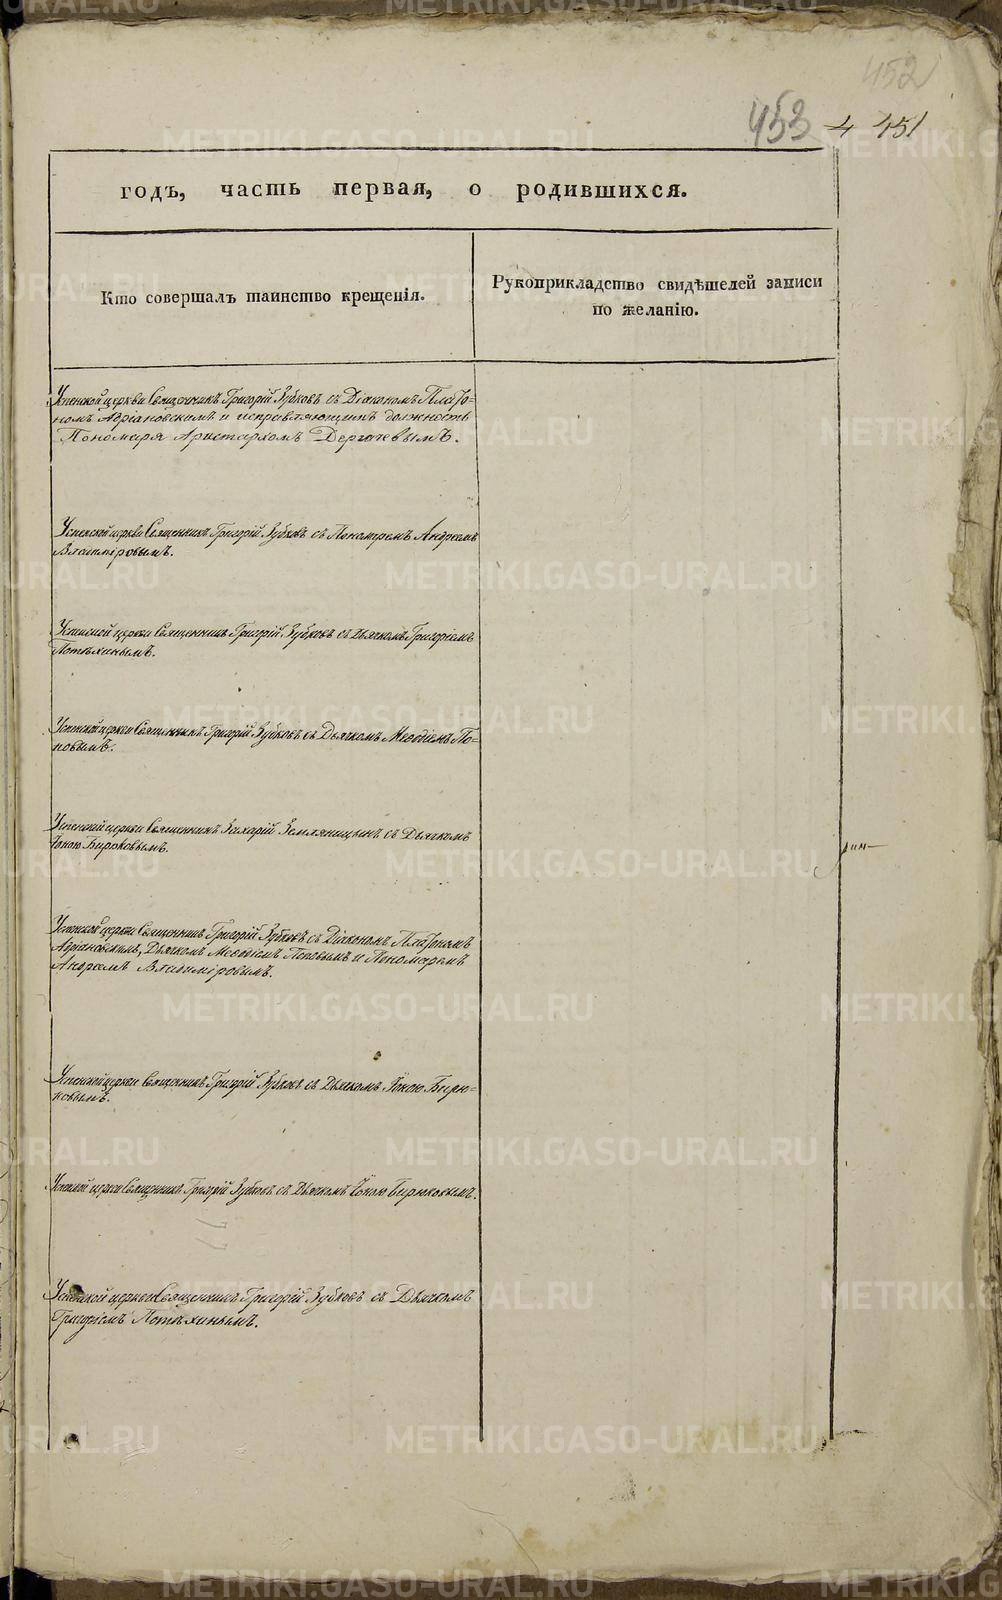 452
453 4 451
годъ, часть первая, о родившихся.
Кто совершалъ таинство крещенія.
Рукоприкладство свидѣтелей записи
по желанію.
Успенской церкви Священникъ Григорій Зубковъ съ Діакономъ Плато=
номъ Адріановскимъ и исправляющимъ должность
Пономаря Аристархомъ Дергачевымъ.
Успенской церкви Священникъ Григорій Зубковъ съ Пономремъ Андреемъ
Владиміровымъ.
Успенской церкви Священникъ Григорій Зубковъ съ Дьячкомъ Григоріемъ
Потѣхинымъ.
Успенской церкви Священникъ Григорій Зубковъ съ Дьячкомъ Меѳодіемъ По=
повымъ.
Успенской церкви Священникъ Захарій Земляницынъ съ Дьячкомъ
Іоною Бирюковымъ.
Успенской церкви Священникъ Григорій Зубковъ съ Діакономъ Платономъ
Адріановскимъ, Дьячкомъ Меѳодіемъ Поповымъ и Пономаремъ
Андреемъ Владиміровымъ.
Успенской церкви Священникъ Григорій Зубковъ съ Дьячкомъ Іоною Бирю=
ковымъ.
Успенской церкви Священникъ Григорій Зубковъ съ Дьячкомъ Іоною Бирюковымъ.
Успенской церкви Священникъ Григорій Зубковъ съ Дьячкомъ
Григоріемъ Потѣхинымъ.
METRIKI.GASO-URAL.RU